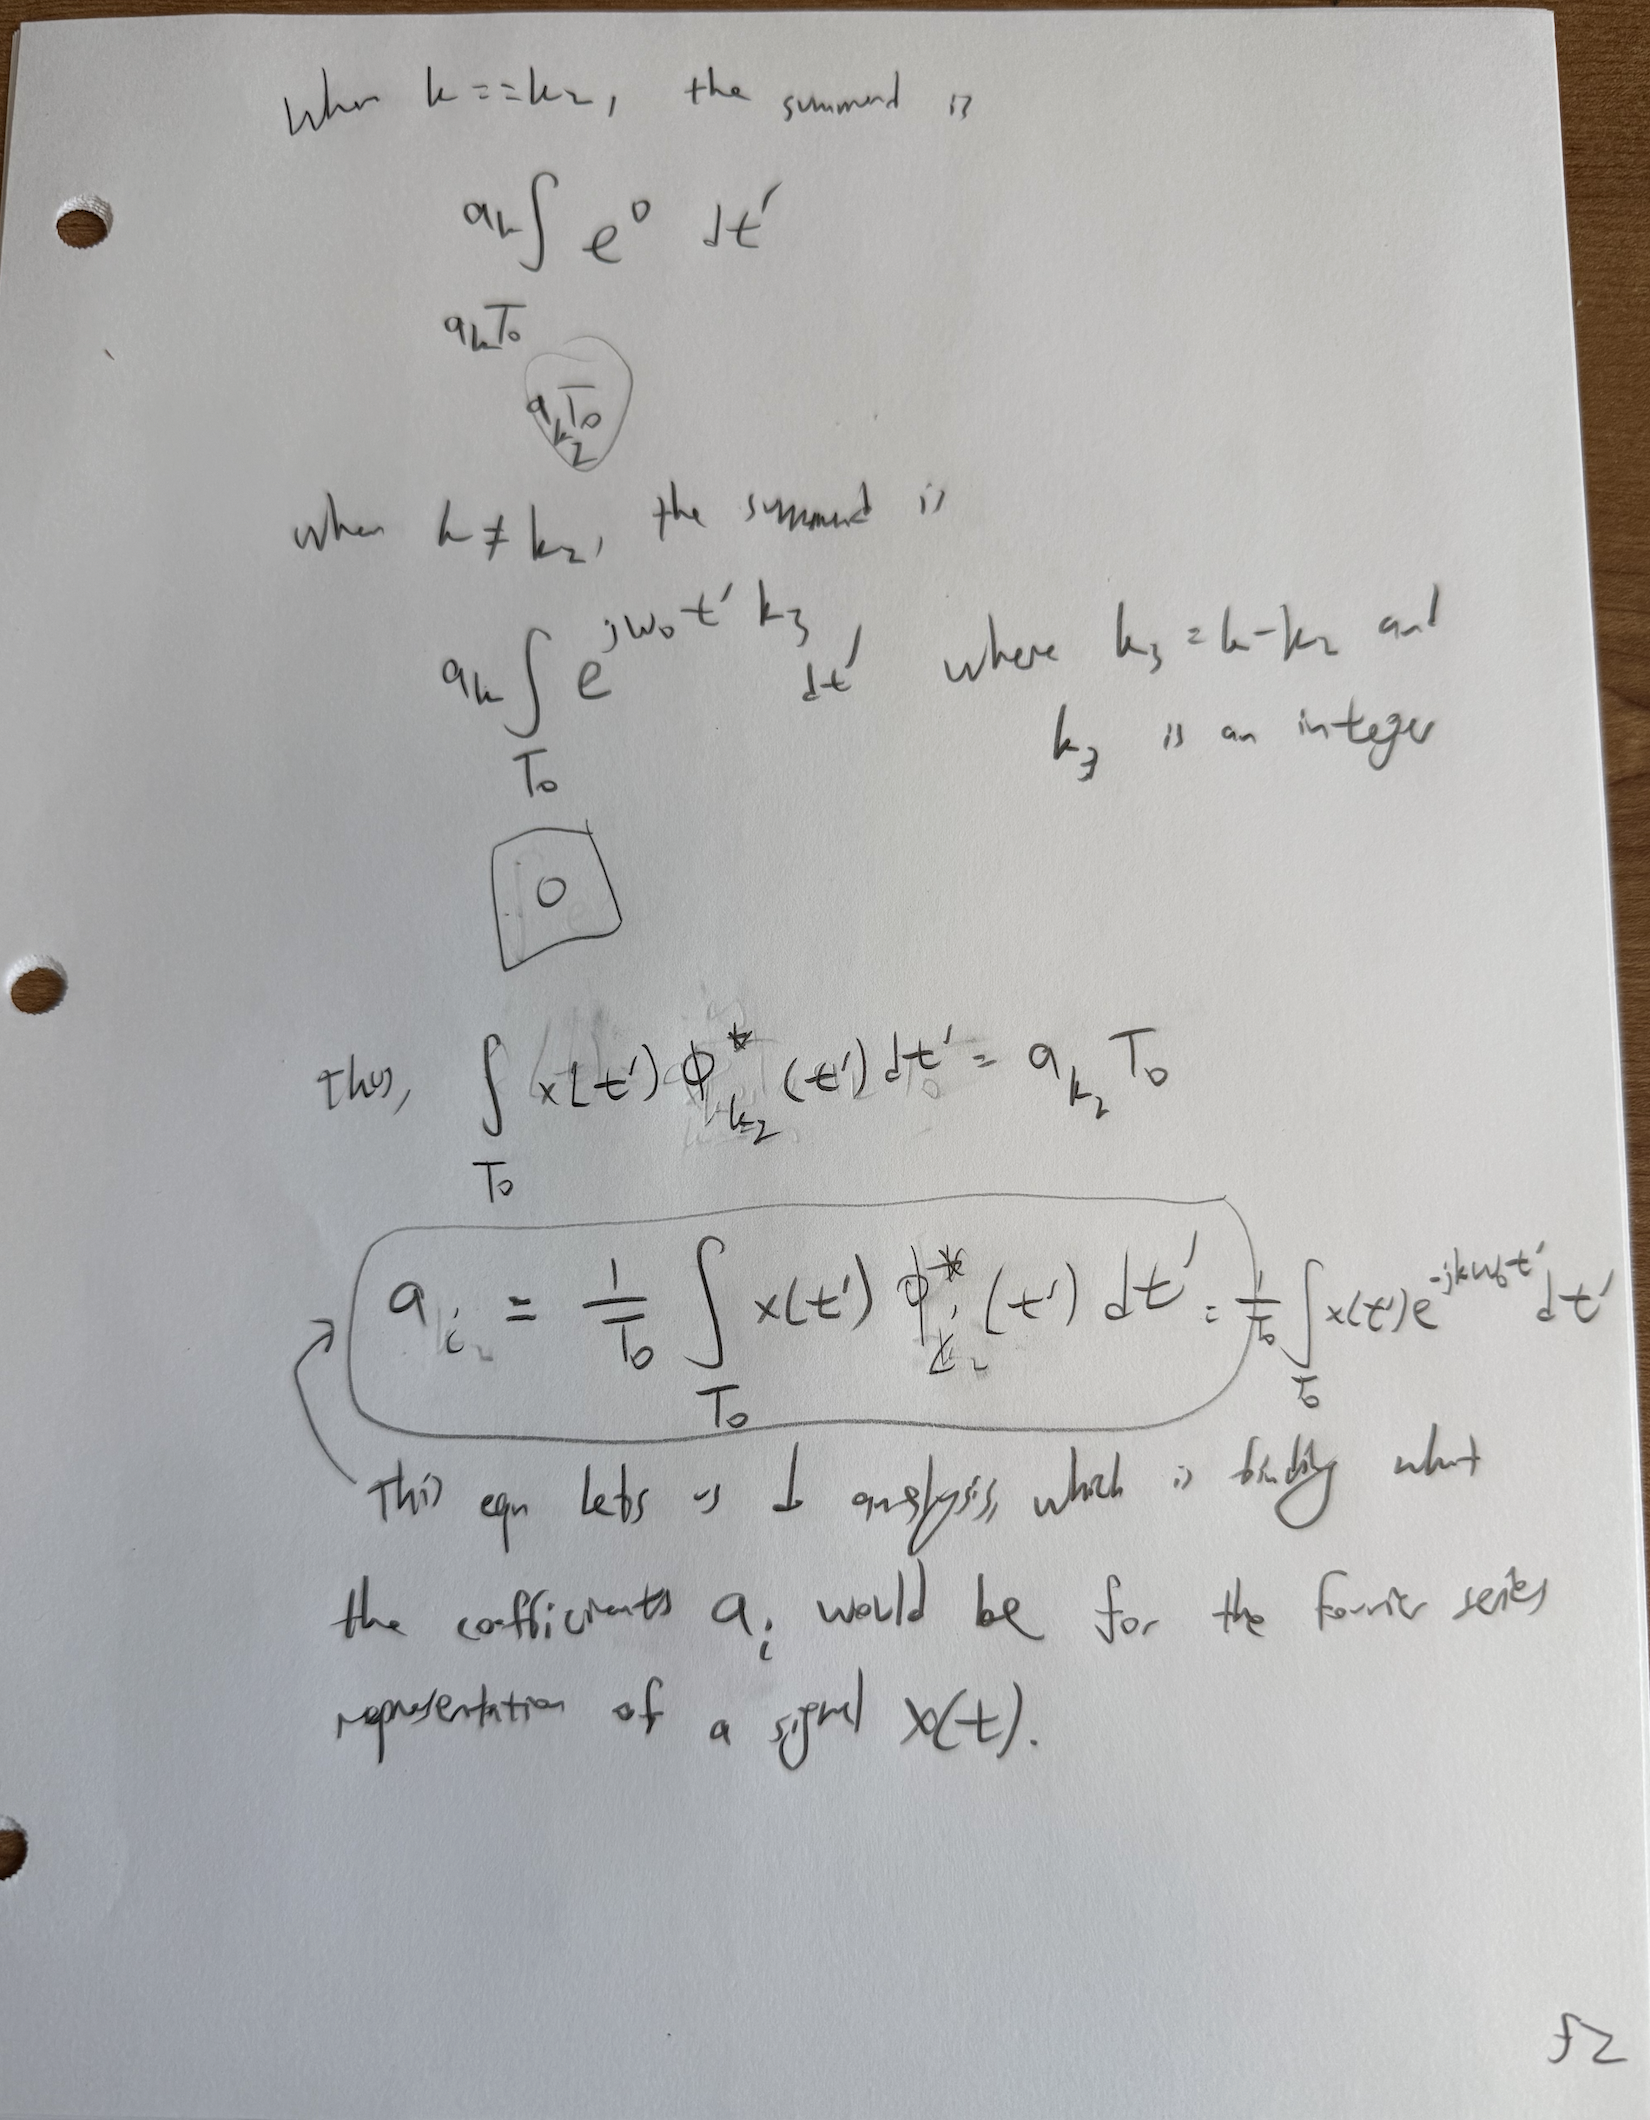 When k==k₂, the summand is
aₖ∫ e⁰ dt'
aₖT₀
a_k₂ T₀
when k≠k₂, the summand is
aₖ∫_T₀ e^(jω₀t'k₃) dt' where k₃=k-k₂ and
k₃ is an integer
0
thus, ∫_T₀ x(t') ϕ*_k₂ (t') dt' = a_k₂ T₀
aᵢ = 1/T₀ ∫_T₀ x(t') ϕ*ᵢ (t') dt' = 1/T₀ ∫_T₀ x(t')e^(-jkω₀t') dt'
This eqn lets us do analysis, which is finding what
the coefficients aᵢ would be for the fourier series
representation of a signal x(t).
f2